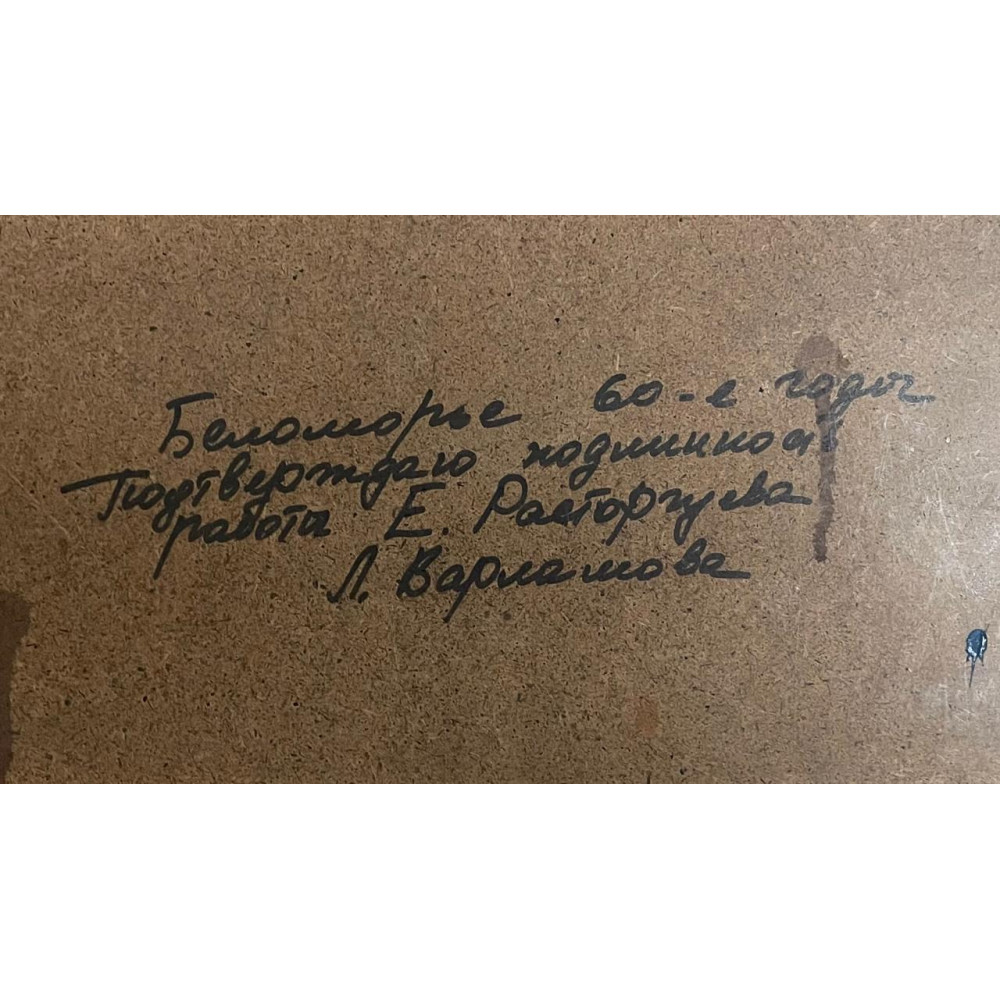 Беломорье 60-е годы
Подтверждаю подлинность
работы Е. Расторгуева
Л. Варламова